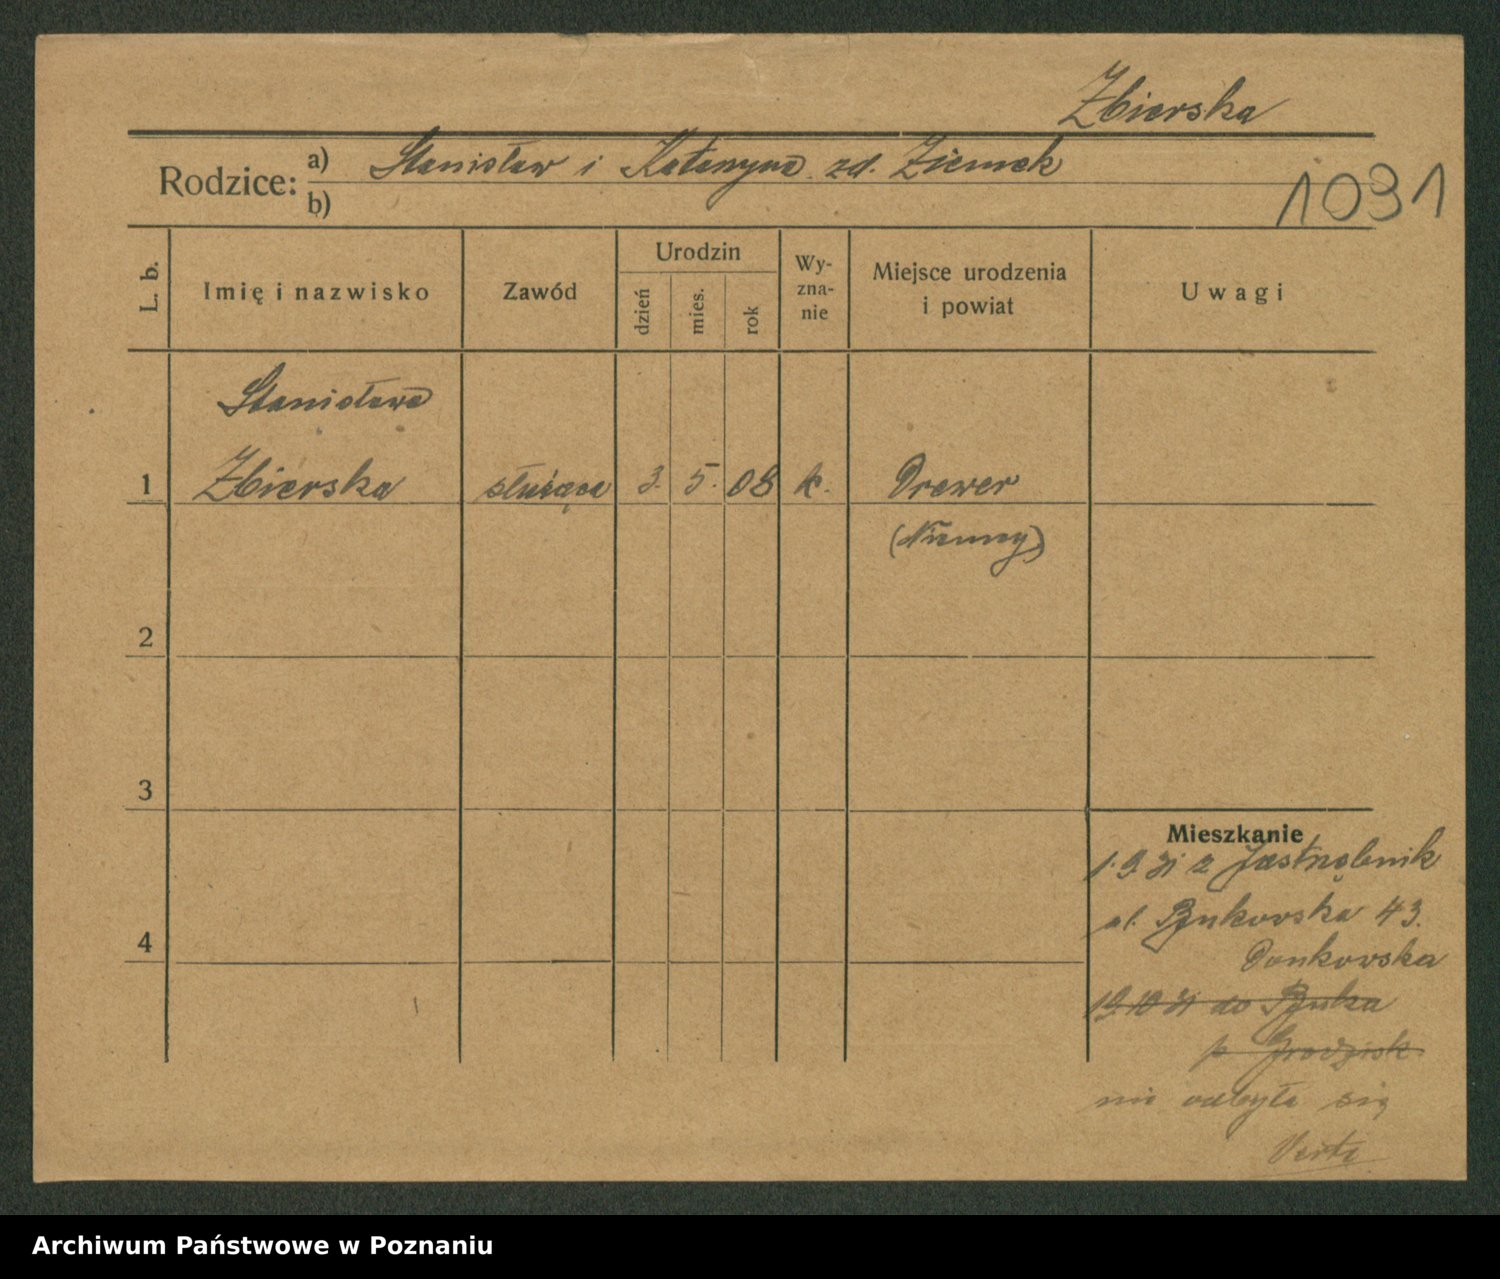 Zbierska
Rodzice: a) Stanisław i Katarzyna zd. Ziemek
b)
1031
L. b.
Imię i nazwisko
Zawód
Urodzin
dzień
mies.
rok
Wy-
zna-
nie
Miejsce urodzenia
i powiat
Uwagi
Stanisława
1 Zbierska służąca 3. 5. 08 k. Drewer
(Niemcy)
2
3
4
Mieszkanie
1.9.31 z Jastrzębnik
ul. Bukowska 43.
Donkowska
19.10 31 do Buku
p. Grodzisk
nie odbyła się
Verte
Archiwum Państwowe w Poznaniu